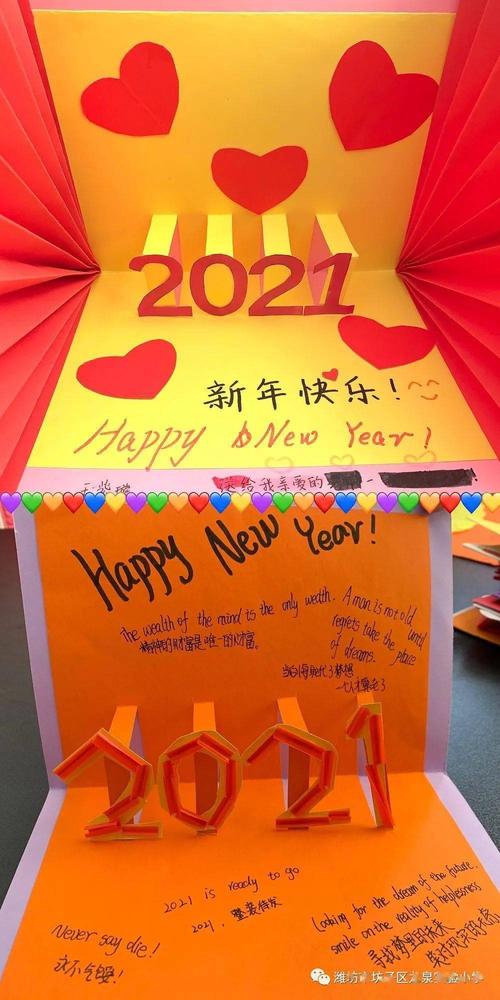 2021
新年快乐!
Happy New Year!
送给我亲爱的
Happy New Year!
The wealth of the mind is the only wealth.
精神的财富是唯一的财富。
A man is not old
until
regrets take the place
of dreams.
当悔恨代了梦想
一个人才算老了
2021
2021 is ready to go
2021,整装待发
Never say die!
永不气馁!
Looking for the dream of the future.
smile on the reality of helplessness
寻找梦里的未来
笑对现实的无奈
潍坊 坊子区 泉 小学